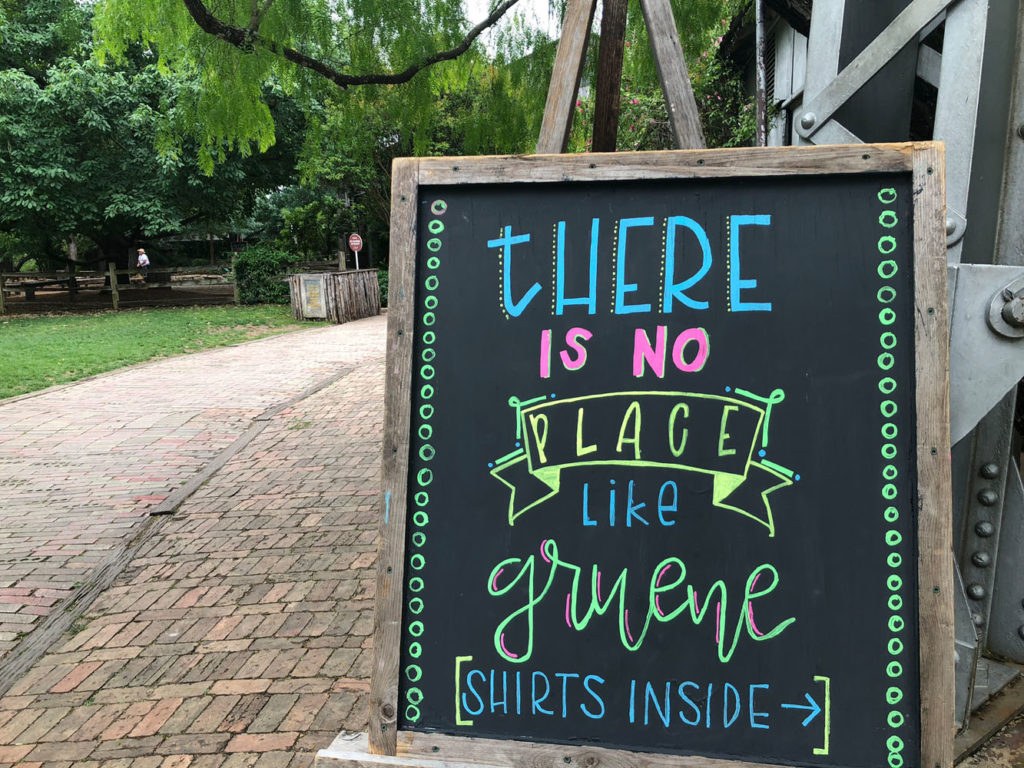 tHERE
IS NO
PLACE
Like
gruene
[SHIRTS INSIDE →]